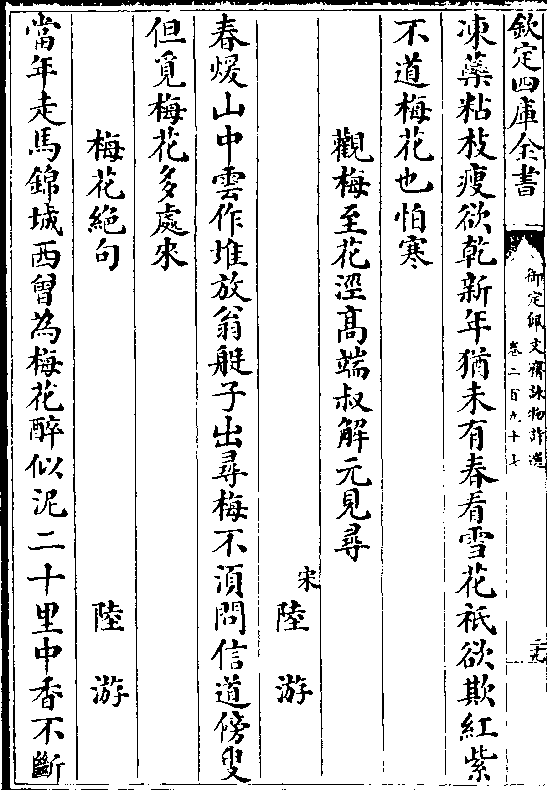 欽定四庫全書
御定佩文齋詠物詩選
卷二百九十七
二十九
凍蘂粘枝瘦欲乾新年猶未有春看雪花祇欲欺紅紫
不道梅花也怕寒
觀梅至花涇高端叔解元見尋
宋陸游
春煖山中雲作堆放翁艇子出尋梅不湏問信道傍叟
但覓梅花多處來
梅花絕句
陸游
當年走馬錦城西曾為梅花醉似泥二十里中香不斷